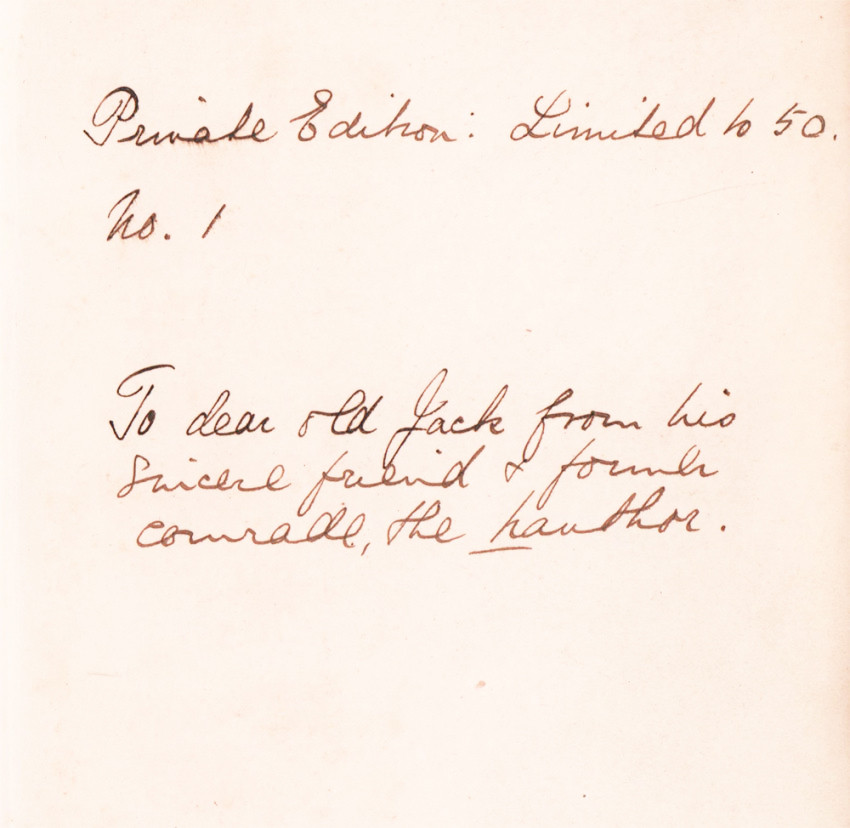 Private Edition: Limited to 50.
No. 1
To dear old Jack from his
sincere friend & former
comrade, the hauthor.